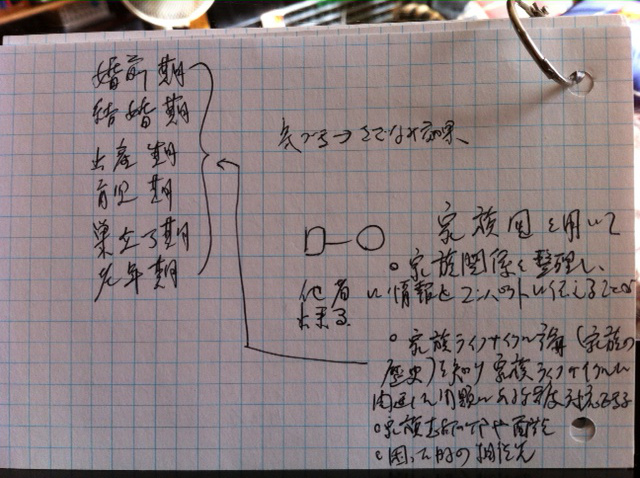 婚前期
結婚期
出産期
育児期
巣立ち期
老年期
気づき→さでなれ効果
家族図を用いて
○家族関係を整理し、
他者に情報をコンパクトに伝えることが
出来る
○家族ライフサイクル(家族の
歴史)を知り家族ライフサイクルに
関連した問題にある程度対応できる
○家族
○困った時の相談先